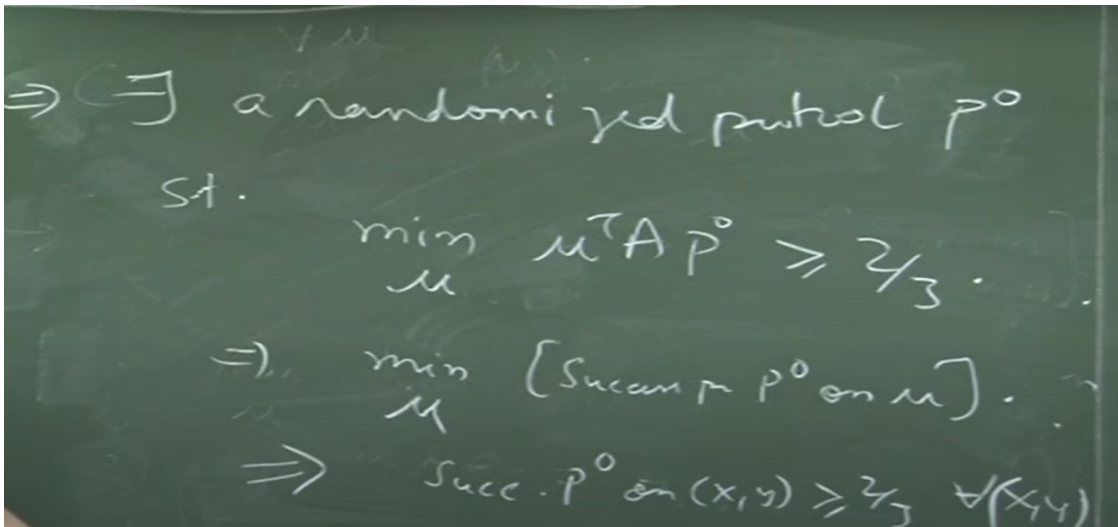 ⇒ ∃ a randomized protocol P⁰
St.
min μᵀ A P⁰ ≥ 2/3 .
μ
⇒ min [Succ pr P⁰ on μ] .
μ
⇒ Succ. P⁰ on (x,y) ≥ 2/3 ∀(x,y)